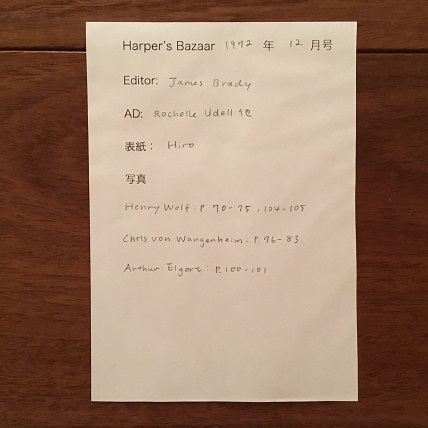 Harper's Bazaar 1972 年 12 月号
Editor: James Brady
AD: Rochelle Udell 他
表紙： Hiro
写真
Henry Wolf: P. 70-75 , 104-105
Chris von Wangenheim: P. 76-83
Arthur Elgort: P. 100-101